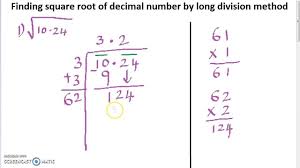 Finding square root of decimal number by long division method
1) √10.24
3.2
3 | 10.24
+3 | -9 ↓
62 | 124
61
× 1
61
62
× 2
124
SCREENCAST MATIC